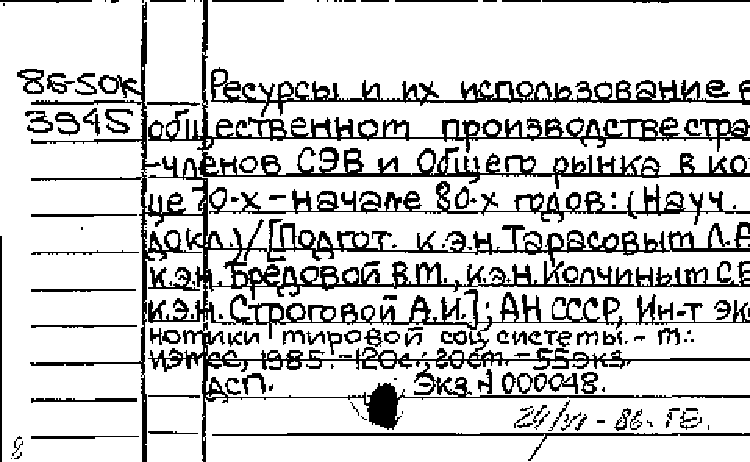 86-50к Ресурсы и их использование в
3945 общественном производстве стра
-членов СЭВ и Общего рынка в ко
це 70-х - начале 80-х годов: (Науч.
докл.) / [Подгот. к.э.н. Тарасовым Л.В
к.э.н. Бредовой В.М., к.э.н. Колчиным С.В
к.э.н. Строговой А.И.]; АН СССР, Ин-т эко
номики мировой соц. системы. - М.:
ИЭМСС, 1985. - 120с.; 20см. - 55экз.
ДСП. Экз. № 000048.
- 86. ГВ.
8